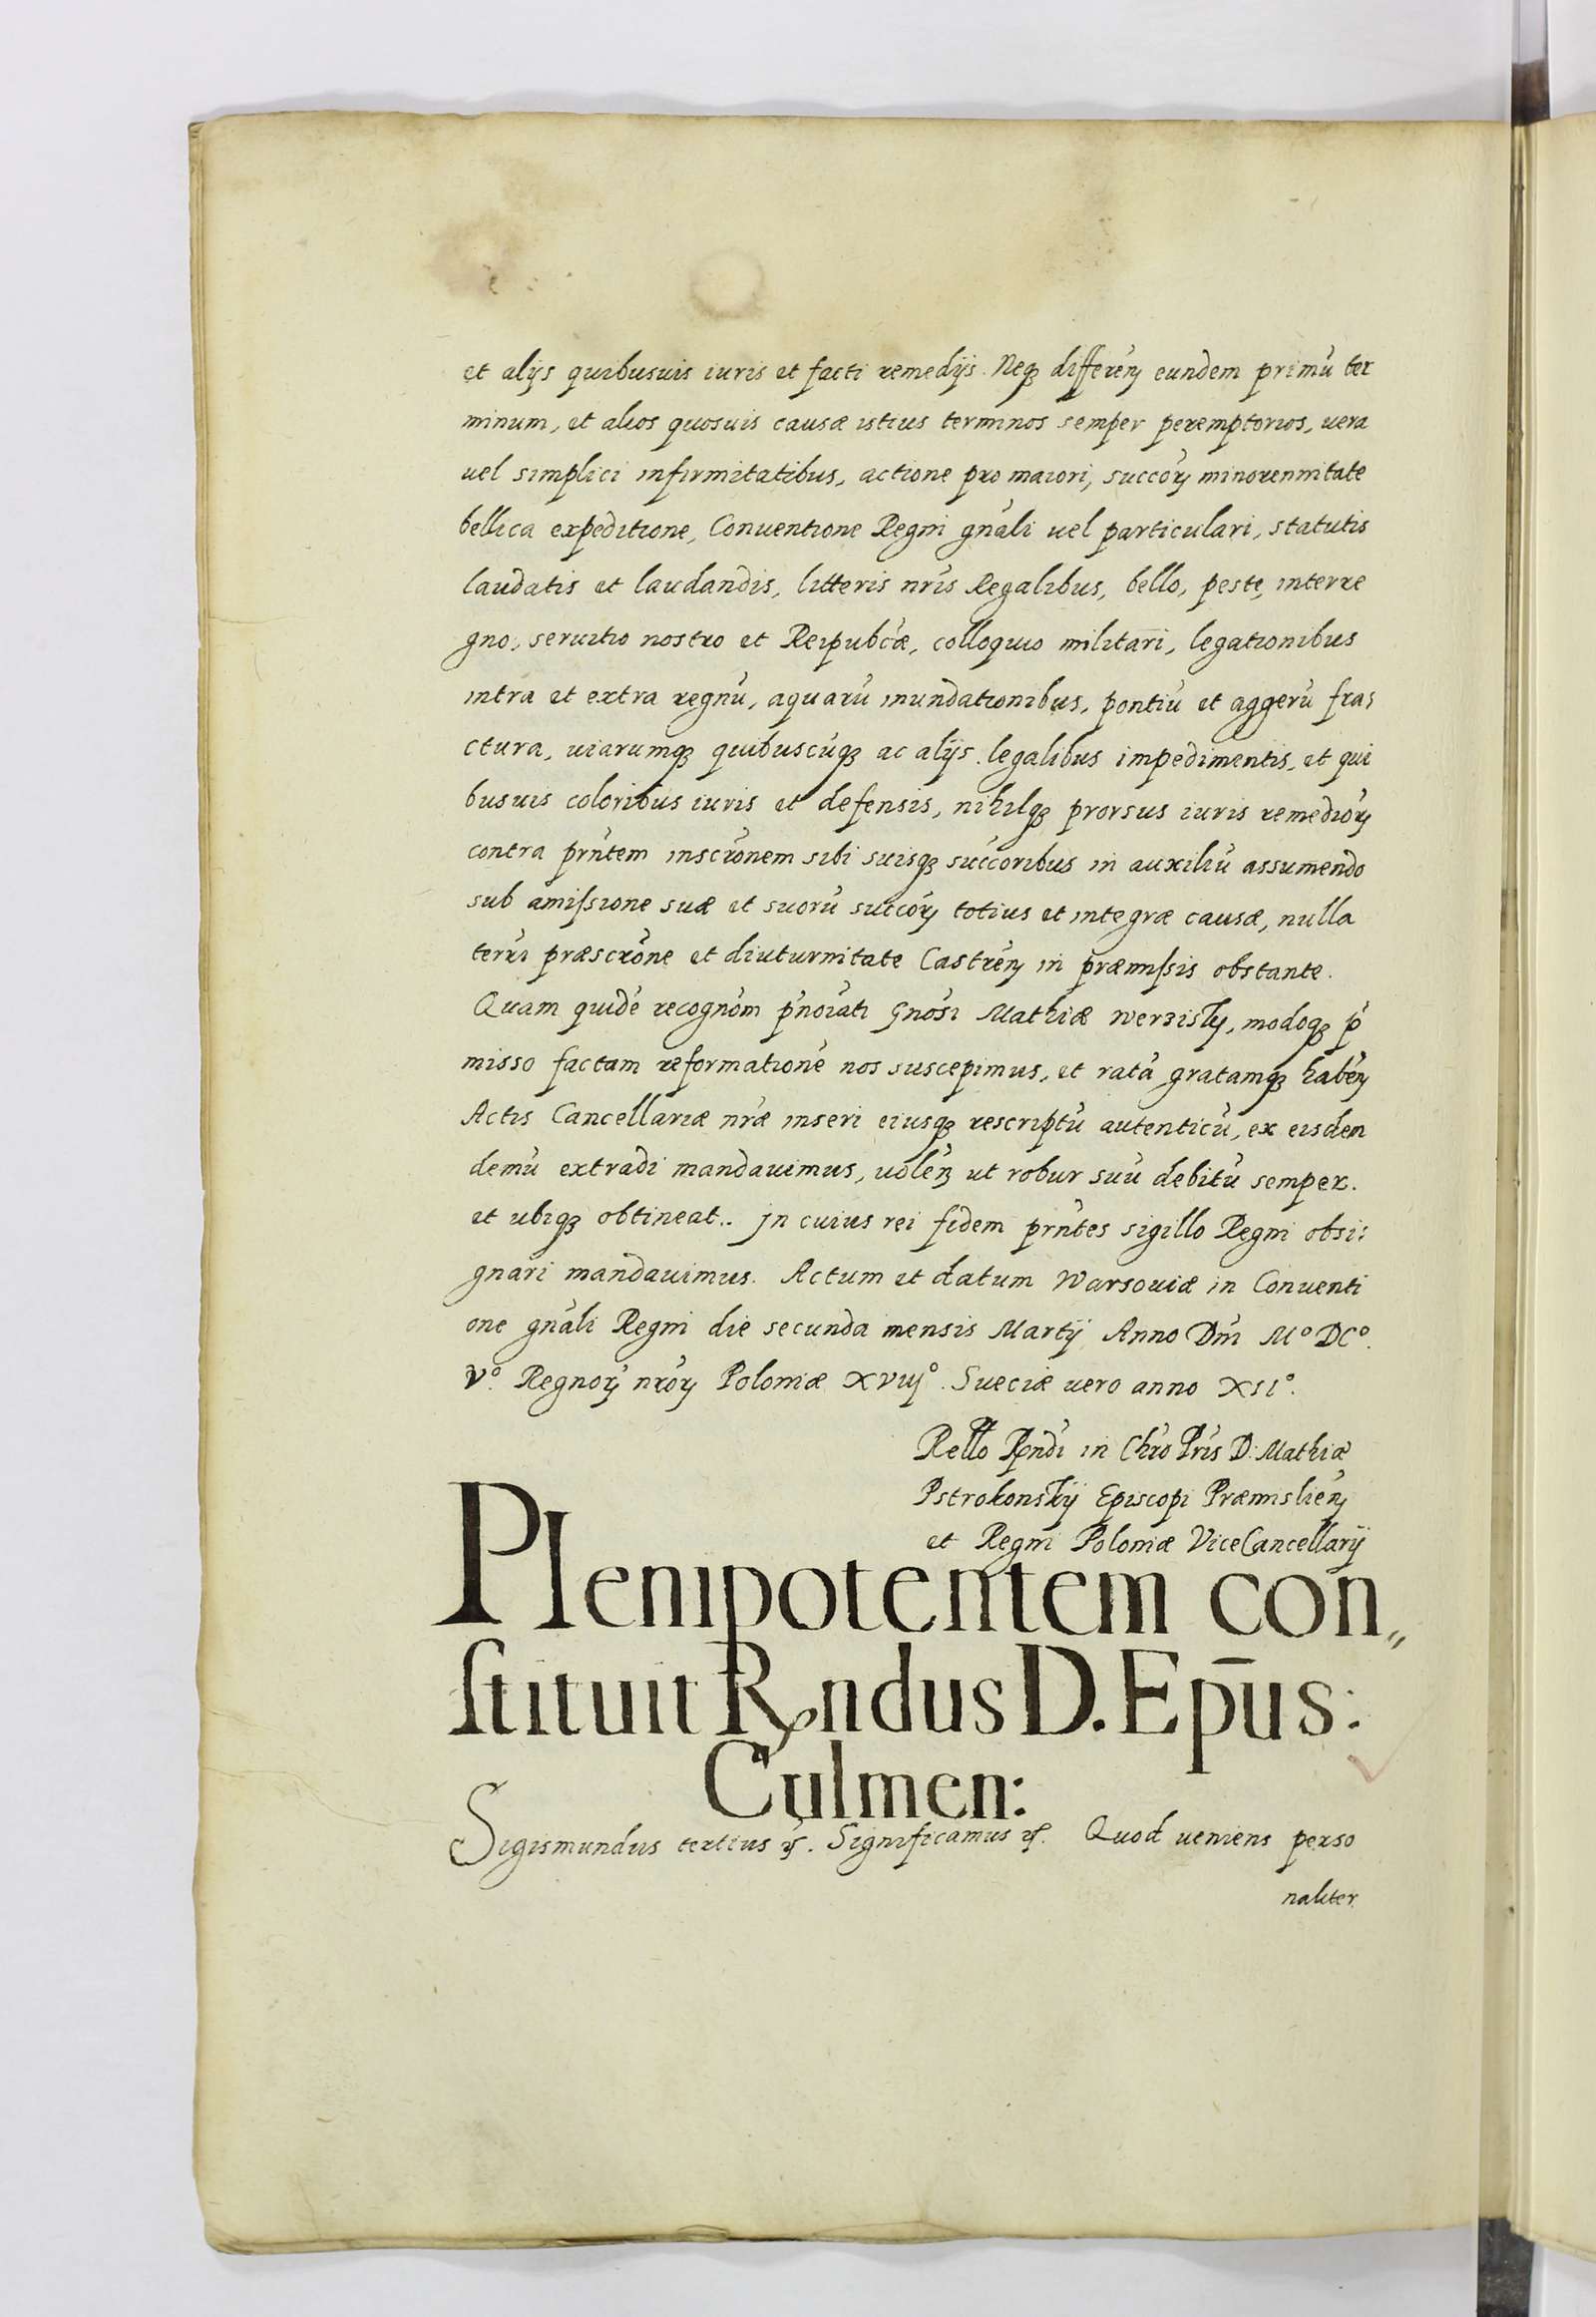 et alijs quibusuis iuris et facti remedijs. Neqꝫ differeñ eundem primũ ter
minum, et alios quosuis causæ istius terminos semper peremptorios, uera
uel simplici infirmitatibus, actione pro maiori, succorꝝ minorennitate
bellica expeditione, Conuentione Regni gñali uel particulari, statutis
laudatis et laudandis, litteris nr̃is Regalibus, bello, peste, interre
gno, seruitio nostro et Reipubc̃æ, colloquio militari, legationibus
intra et extra regnũ, aquarũ inundationibus, pontiũ et aggerũ fra:
ctura, uiarumqꝫ quibuscũqꝫ ac alijs legalibus impedimentis, et qui
busuis coloribus iuris et defensis, nihilqꝫ prorsus iuris remediorꝝ
contra prñtem inscr̃onem sibi suisqꝫ succ̃oribus in auxiliũ assumendo
sub amißione suæ et suorũ succorꝝ totius et integræ causæ, nulla
terr̃i præscr̃one et diuturnitate Castreñ in præmißis obstante.
Quam quidẽ recognõm p̃noĩati Gñosi Mathiæ Werzisky, modoqꝫ p̃
misso factam reformationẽ nos suscepimus, et ratã gratamqꝫ habeñ
Actis Cancellariæ nr̃æ inseri eiusqꝫ rescriptũ autenticũ, ex eisdem
demũ extradi mandauimus, uoleñ ut robur suũ debitũ semper.
et ubiqꝫ obtineat.. Jn cuius rei fidem prñtes sigillo Regni obsi:
gnari mandauimus. Actum et datum Warsouiæ in Conuenti
one gñali Regni die secunda mensis Martij Anno Dñi Mº DCº.
Vº. Regnorꝝ nr̃orꝝ Poloniæ XVIIJº. Sueciæ uero anno XIIº.
Rello Rñdi in Chr̃o Pr̃is D: Mathiæ
Pstrokonskij Episcopi Præmislieñ
et Regni Poloniæ ViceCancellarij
Plenipotentem con„
stituit Rndus D. Ep̄us:
Culmen:
Sigismundus tertius ꝛc. Significamus ꝛc. Quod ueniens perso
naliter